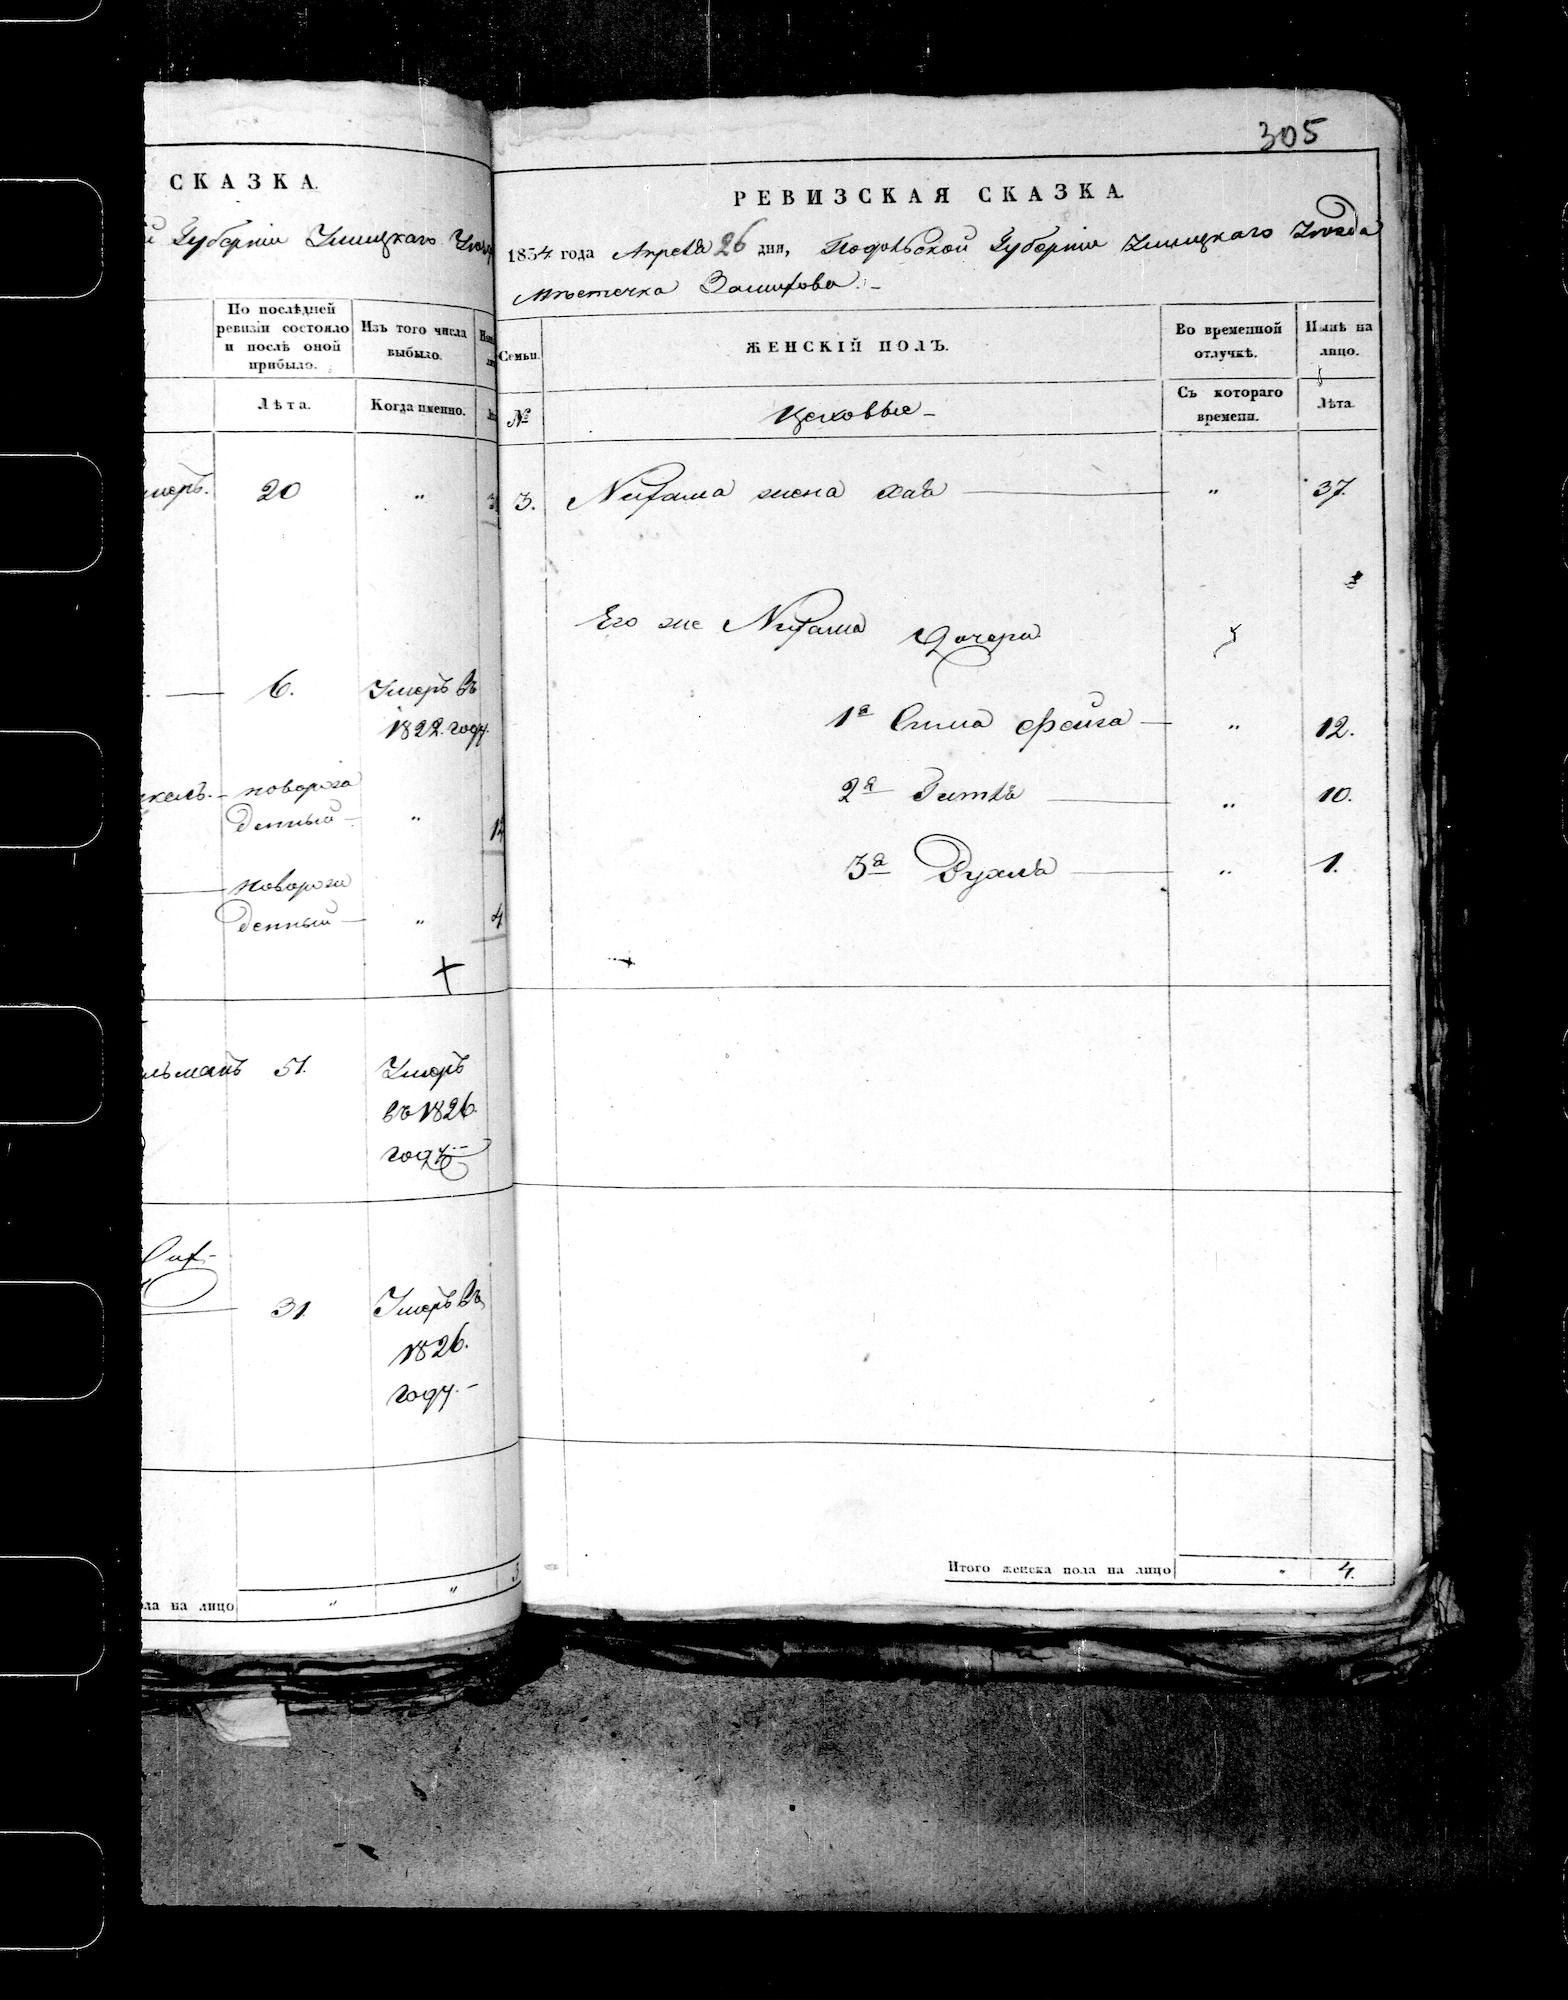 305
СКАЗКА.
й Губерніи Ушицкаго Уезда
По послѣдней ревизіи состояло и послѣ оной прибыло.
Изъ того числа выбыло.
Лѣта.
Когда именно.
20 "
6. Умеръ въ
1822. году.
новорож
денный "
новорож
денный — " 4
льманъ 51. Умеръ
въ 1826.
году.
31. Умеръ въ
1826.
году. —
на лицо " "
РЕВИЗСКАЯ СКАЗКА.
1834 года Апреля 26 дня, Подольской Губерніи Ушицкаго Уезда
Мѣстечка
Семьи.
ЖЕНСКІЙ ПОЛЪ.
Во временной отлучкѣ.
Нынѣ на лицо.
№
Цеховые —
Съ котораго времени.
Лѣта.
3. жена Хая — " 37.
Его же Дочери
1я Сима Фейга — " 12.
2я Гитля — " 10.
3я Рухля — " 1.
Итого женска пола на лицо " 4.